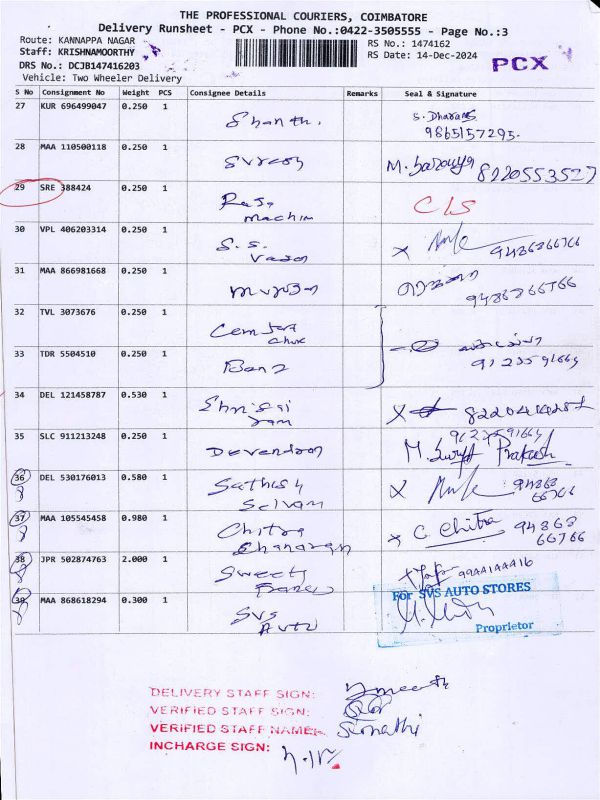 THE PROFESSIONAL COURIERS, COIMBATORE
Delivery Runsheet - PCX - Phone No.:0422-3505555 - Page No.:3
Route: KANNAPPA NAGAR RS No.: 1474162
Staff: KRISHNAMOORTHY RS Date: 14-Dec-2024
DRS No.: DCJB147416203 PCX
Vehicle: Two Wheeler Delivery
S No Consignment No Weight PCS Consignee Details Remarks Seal & Signature
27 KUR 696499047 0.250 1 Shanthi. S. Dharani
9865157295.
28 MAA 110500118 0.250 1 Suresh 8220553527
29 SRE 388424 0.250 1 Raja CLS
machin
30 VPL 406203314 0.250 1 S.S. x 9486366766
Vasan
31 MAA 866981668 0.250 1 murugan 9486366766
32 TVL 3073676 0.250 1
33 TDR 5504510 0.250 1 9123591664
34 DEL 121458787 0.530 1 x
35 SLC 911213248 0.250 1 Devendran 9123591664
M. Surya Prakash
36 DEL 530176013 0.580 1 Sathish x 94863
Selvam 66766
37 MAA 105545458 0.980 1 Chitra x C. Chitra 94863
66766
38 JPR 502874763 2.000 1 Sweety x 9944144416
39 MAA 868618294 0.300 1 SVS For SVS AUTO STORES
Auto
Proprietor
DELIVERY STAFF SIGN:
VERIFIED STAFF SIGN:
VERIFIED STAFF NAME: Sumathi
INCHARGE SIGN: